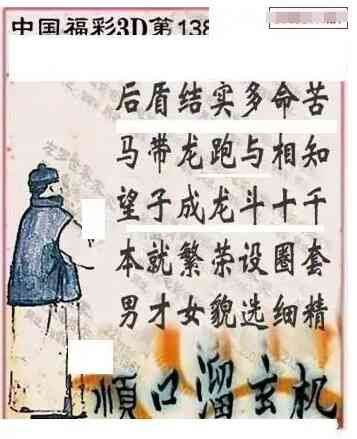 中国福彩3D第138
后盾结实多命苦
马带龙跑与相知
望子成龙斗十千
本就繁荣设圈套
男才女貌选细精
顺口溜玄机